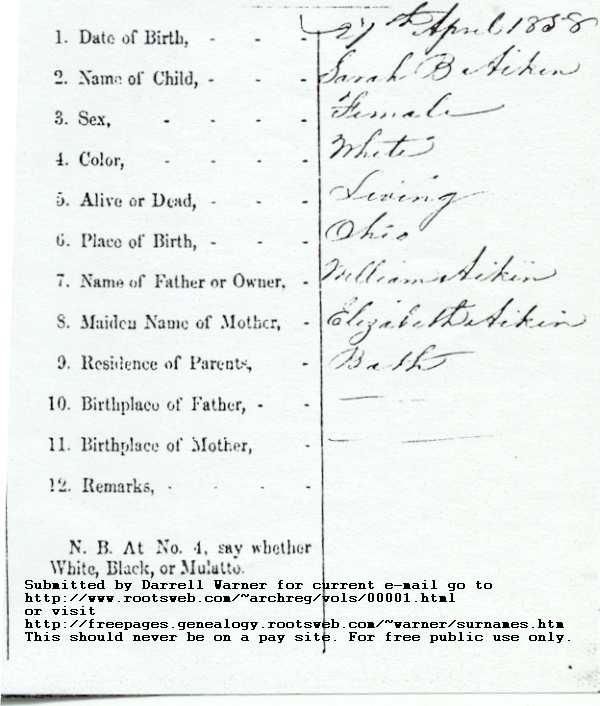 1. Date of Birth, - - - 27th April 1858
2. Name of Child, - - - Sarah B Aiken
3. Sex, - - - - Female
4. Color, - - - - White
5. Alive or Dead, - - - Living
6. Place of Birth, - - - Ohio
7. Name of Father or Owner, - William Aikin
8. Maiden Name of Mother, - Elizabeth Aikin
9. Residence of Parents, - Bath
10. Birthplace of Father, - - —
11. Birthplace of Mother, - — —
12. Remarks, - - - -
N. B. At No. 4, say whether
White, Black, or Mulatto.
Submitted by Darrell Warner for current e-mail go to
http://www.rootsweb.com/~archreg/vols/00001.html
or visit
http://freepages.genealogy.rootsweb.com/~warner/surnames.htm
This should never be on a pay site. For free public use only.